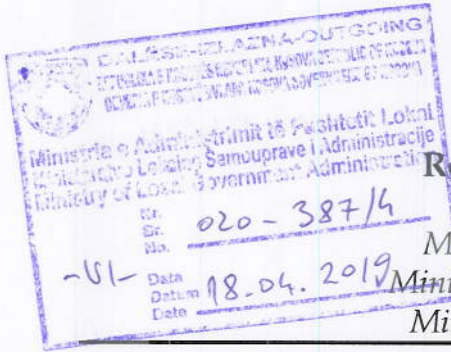 DALESE-IZLAZNA-OUTGOING
Ministria e Administrimit të Pushtetit Lokal
Ministarstvo Lokalne Samouprave i Administracije
Ministry of Local Government Administration
Nr.
Br.
No. 020-387/4
-VI- Data
Datum
Date 18.04.2019
R
M
Mini
Mi